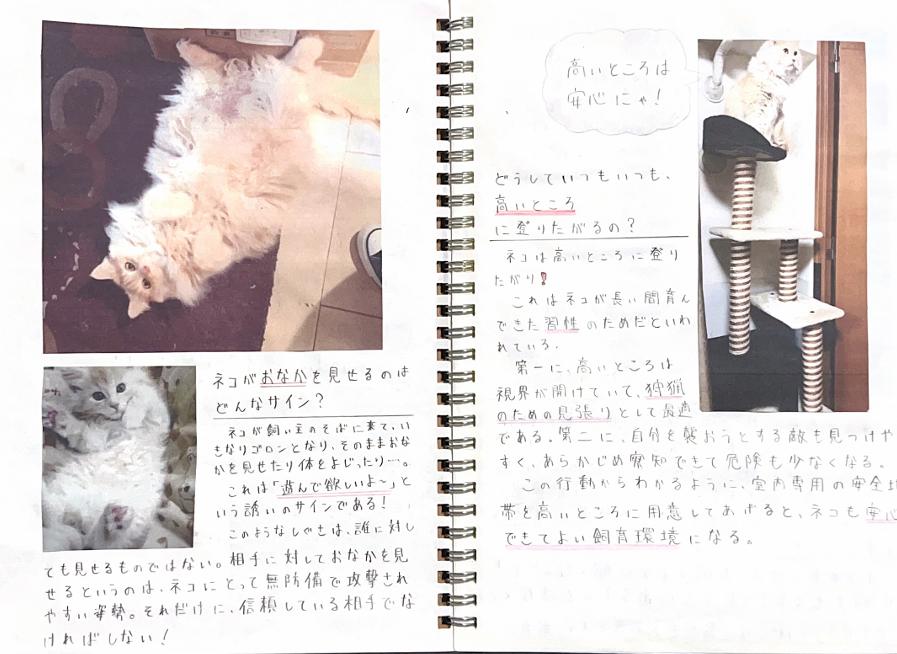 ネコがおなかを見せるのは
どんなサイン？
ネコが飼い主のそばに来て、い
きなりゴロンとなり、そのままおな
かを見せたり体をよじったり…。
これは「遊んで欲しいよ～」と
いう誘いのサインである！
このようなしぐさは、誰に対し
ても見せるものではない。相手に対しておなかを見
せるというのは、ネコにとって無防備で攻撃され
やすい姿勢。それだけに、信頼している相手でな
ければしない！
高いところは
安心にゃ！
どうしていつもいつも、
高いところ
に登りたがるの？
ネコは高いところに登り
たがり！
これはネコが長い間育ん
できた習性のためだといわ
れている。
第一に、高いところは
視界が開けていて、狩猟
のための見張りとして最適
である。第二に、自分を襲おうとする敵も見つけや
すく、あらかじめ察知できて危険も少なくなる。
この行動からわかるように、室内専用の安全地
帯を高いところに用意してあげると、ネコも安心
できてよい飼育環境になる。